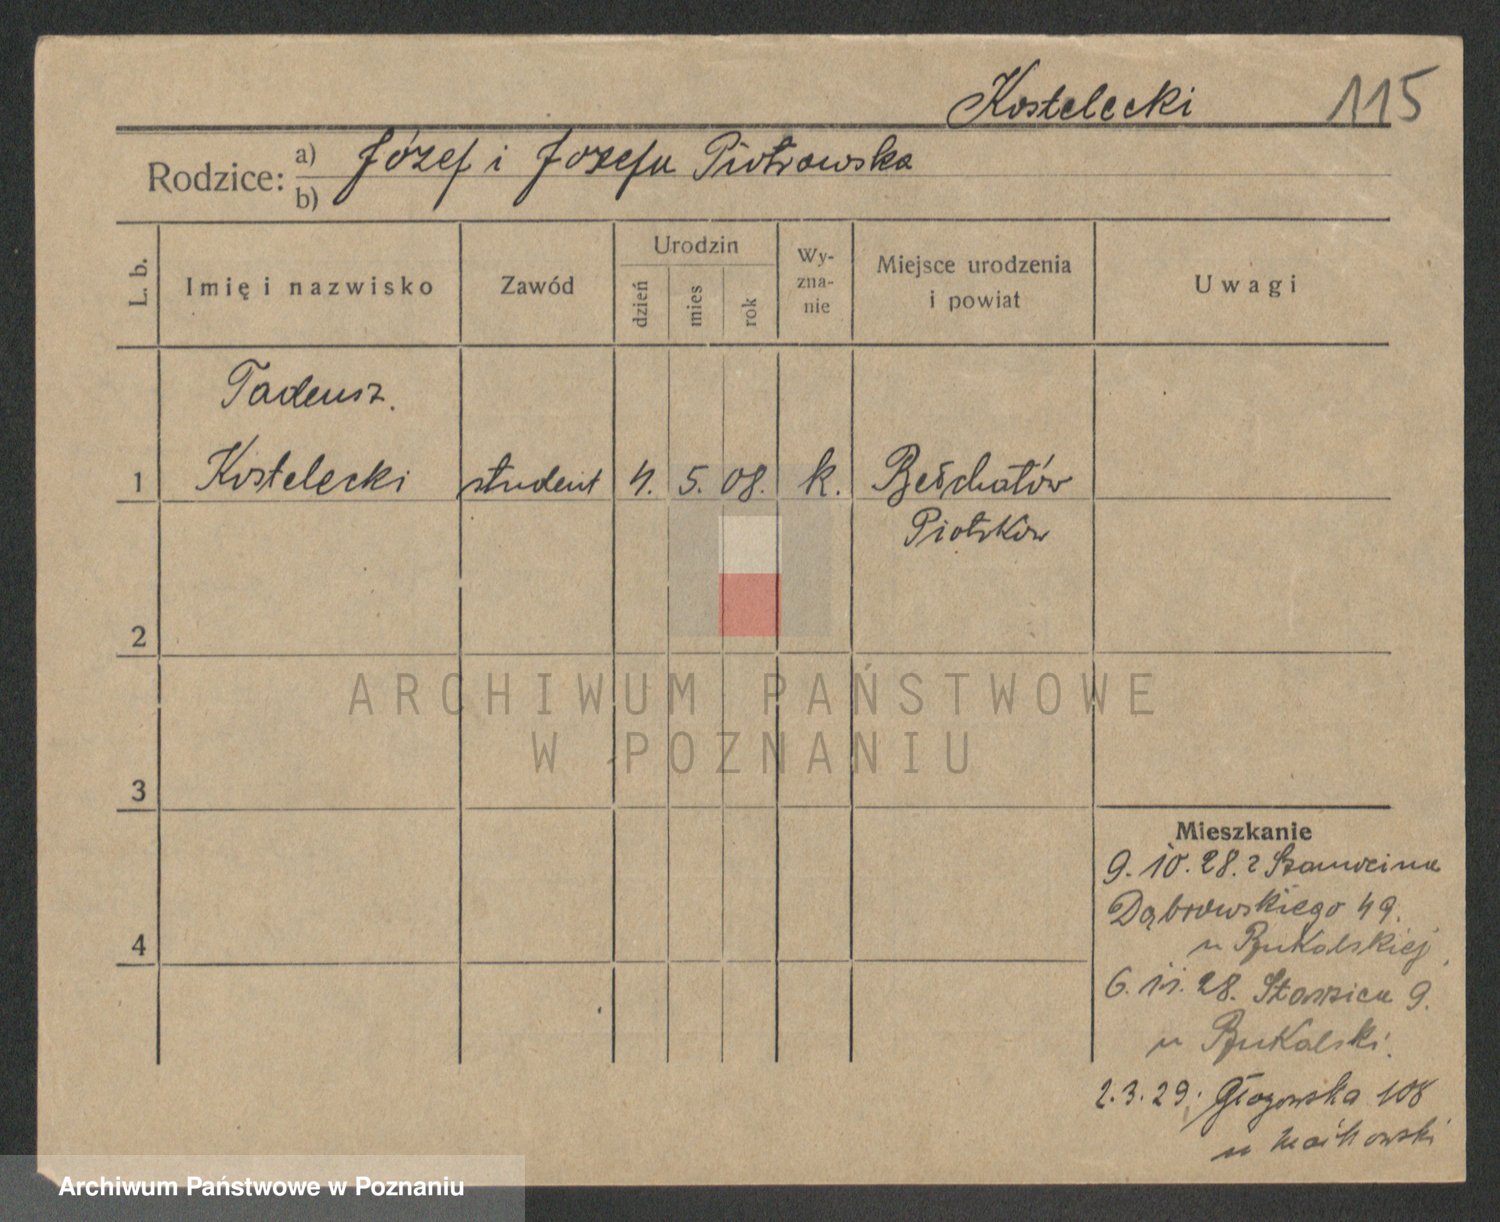 Kostelecki 115
Rodzice: a) Józef i Józefa Piotrowska
b)
L. b.
Imię i nazwisko
Zawód
Urodzin
dzień
mies
rok
Wy-
zna-
nie
Miejsce urodzenia
i powiat
Uwagi
Tadeusz.
1 Kostelecki student 4. 5. 08. k. Bełchatów
Piotrków
2
ARCHIWUM PAŃSTWOWE
W POZNANIU
3
Mieszkanie
9. 10. 28. z Szamocina
Dąbrowskiego 49.
4
u Bukalskiej
6. 11. 28. Staszica 9.
u Bukalski.
2. 3. 29. Głogowska 108
u
Archiwum Państwowe w Poznaniu